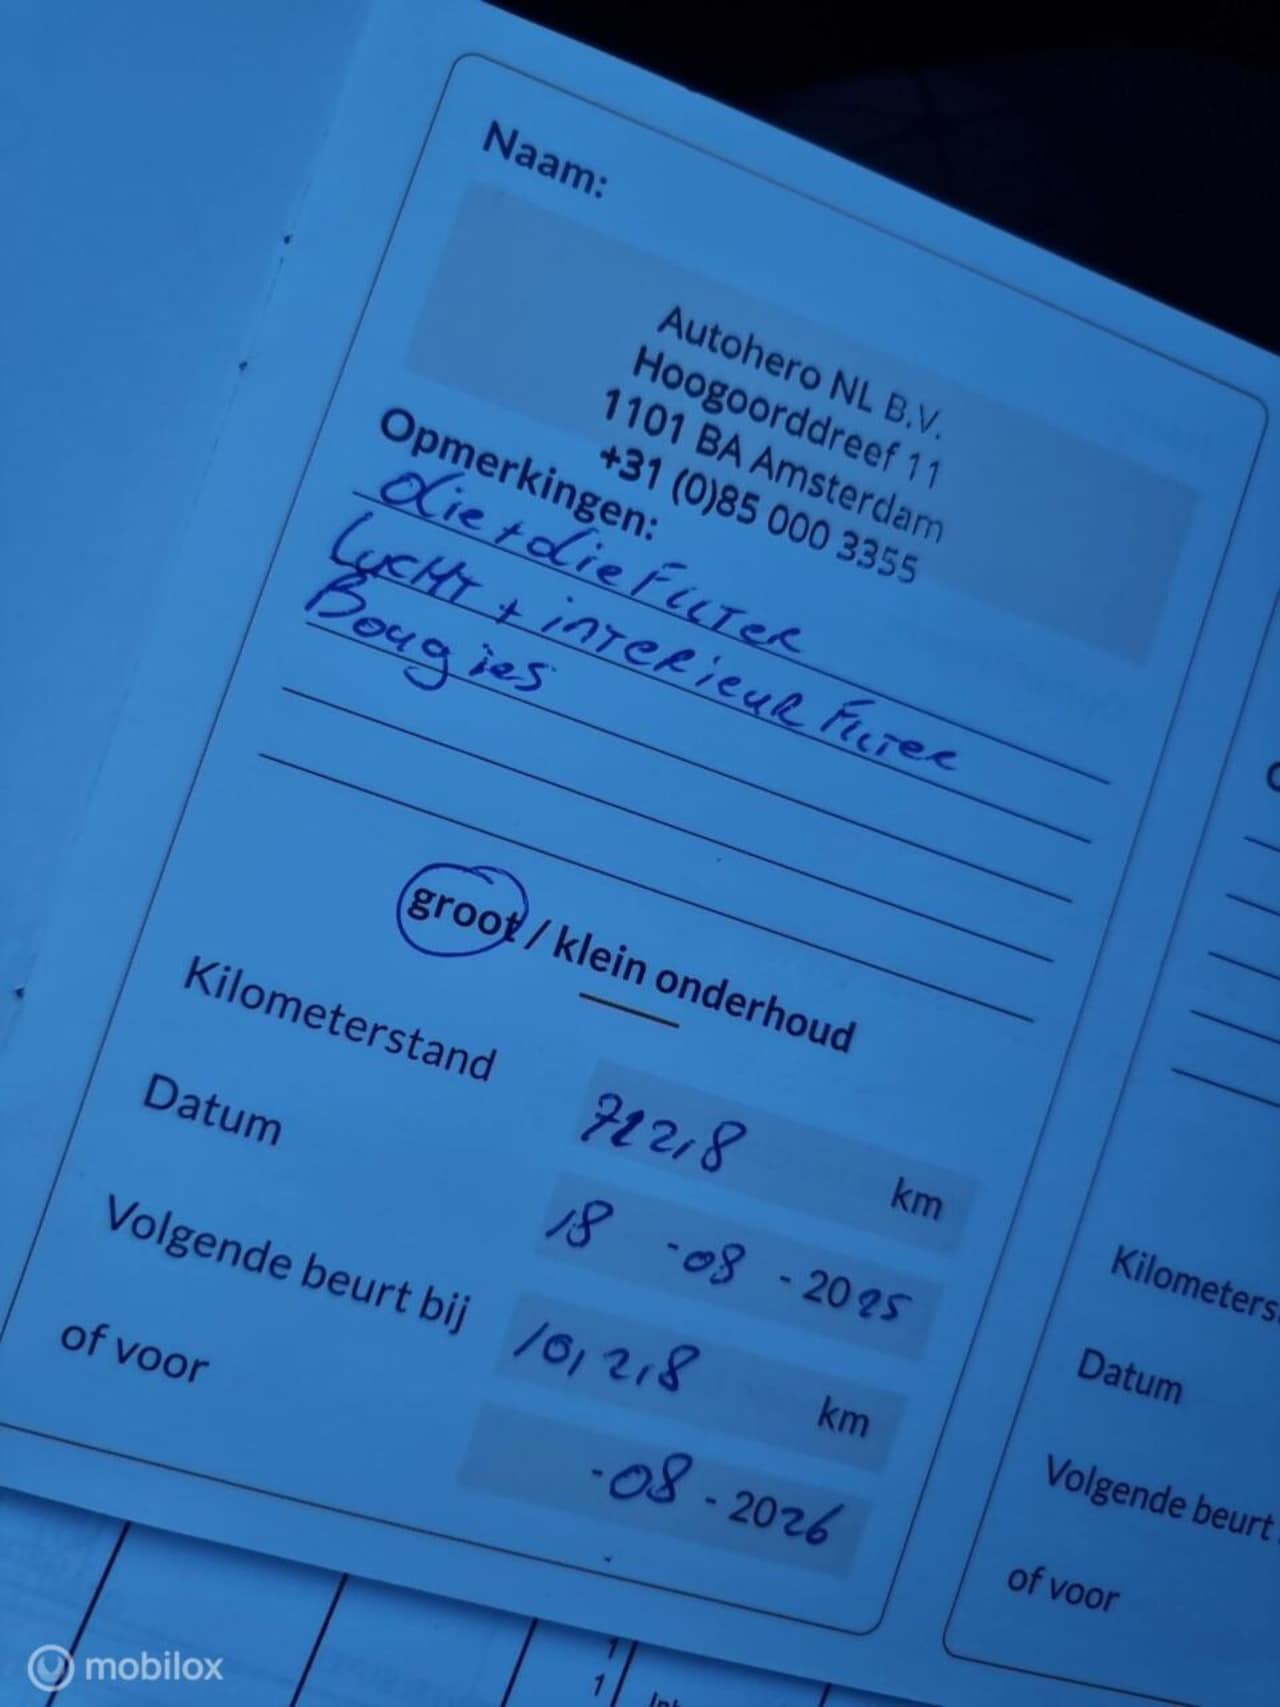 Naam:
Autohero NL B.V.
Hoogoorddreef 11
1101 BA Amsterdam
+31 (0)85 000 3355
Opmerkingen:
olie + olie Filter
Lucht + interieur Filter
Bougies
groot / klein onderhoud
Kilometerstand
km
Datum
18 - 08 - 2025
Volgende beurt bij
km
of voor
- 08 - 2026
Kilometers
Datum
Volgende beurt
of voor
1
1
mobilox